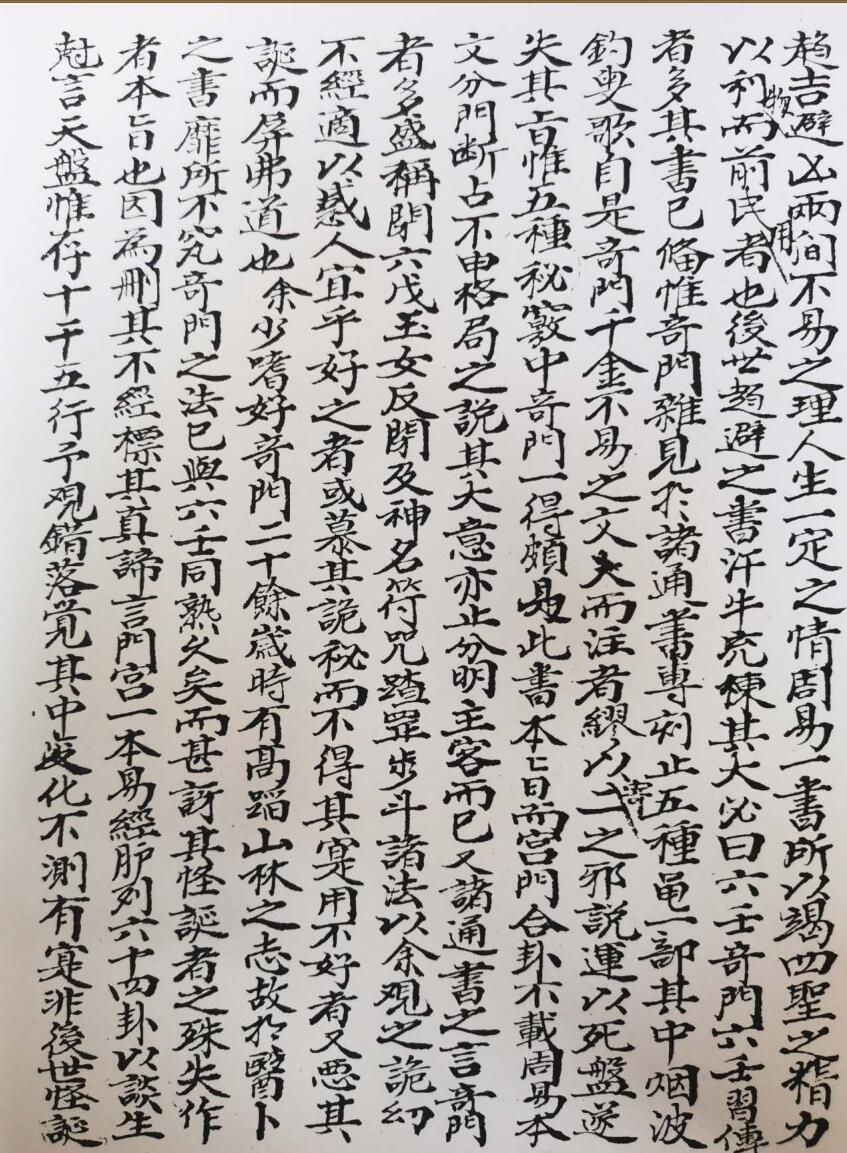 趋吉避凶两间不易之理人生一定之情周易一書所以竭四聖之精力
以利物前民用者也後世趋避之書汗牛充棟其大必曰六壬奇門六壬習傳
者多其書已俻惟奇門雜見於諸通書專刻止五種黾一部其中烟波
釣叟歌自是奇門千金不易之文夫而注者繆以寄二之邪説運以死盤遂
失其旨惟五種秘竅中奇門一得頗是此書本旨而宮門合卦不載周易本
文分門断占不申格局之説其大意亦止分明主客而已又諸通書之言奇門
者多盛稱閉六戊玉女反閉及神名符咒踏罡步斗諸法以余观之詭幻
不經適以惑人宜乎好之者或慕其詭秘而不得其寔用不好者又悪其
誕而屏弗道也余少嗜好奇門二十餘歲時有高蹈山林之志故於醫卜
之書靡所不究奇門之法已與六壬同熟久矣而甚訝其怪誕者之殊失作
者本旨也因為删其不經標其真諦言門宫一本易經胪列六十四卦以談生
尅言天盤惟存十干五行予观錯落覚其中变化不測有寔非後世怪誕